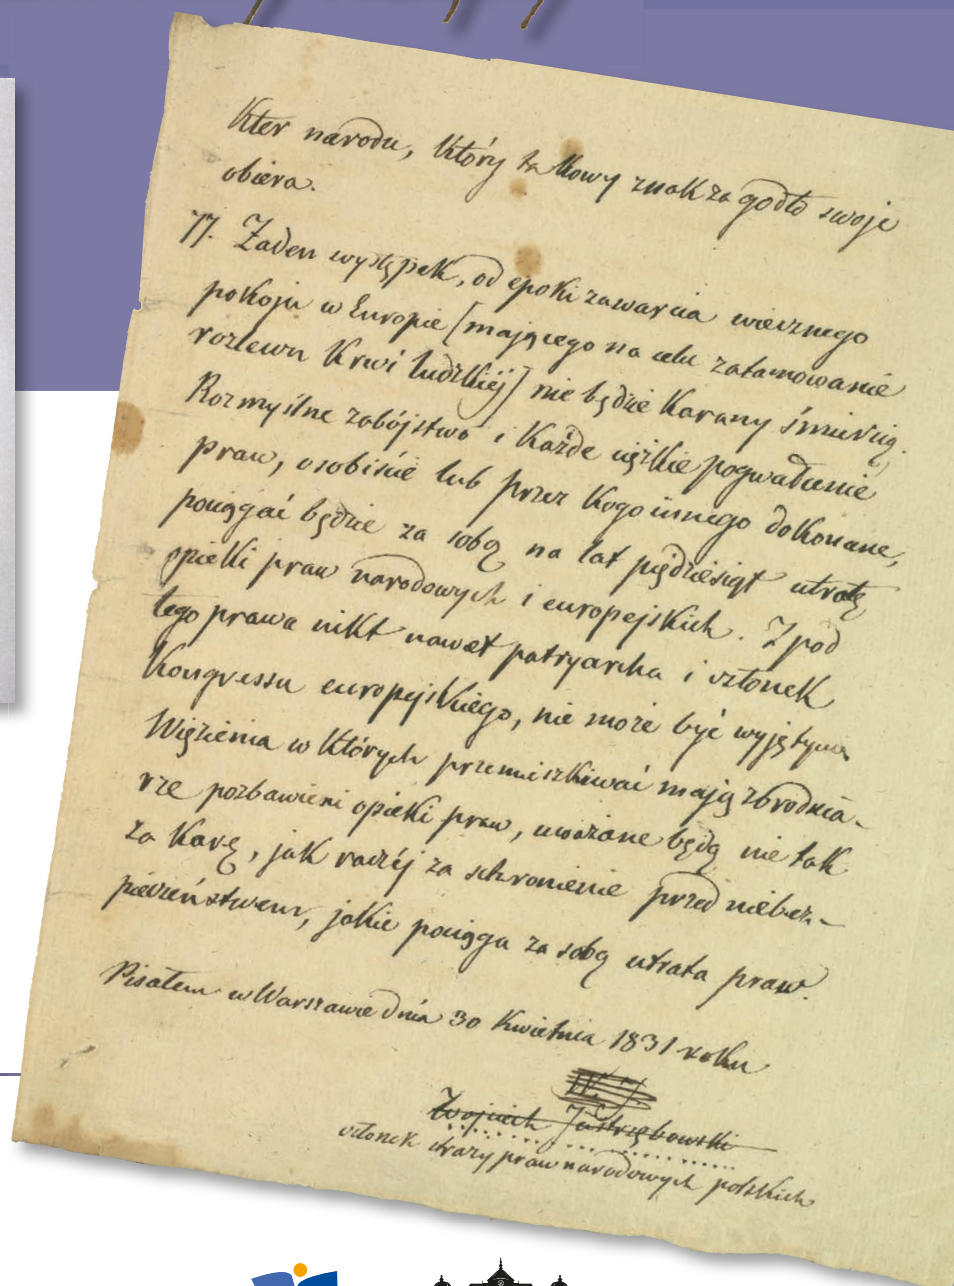 kter narodu, który takowy znak za godło swoje
obiera.
77. Żaden występek, od epoki zawarcia wiecznego
pokoju w Europie [mającego na celu zatamowanie
rozlewu krwi ludzkiéj] nie będzie karany śmiercią.
Rozmyślne zabójstwo i każde ciężkie pogwałcenie
praw, osobiście lub przez kogo innego dokonane,
pociągać będzie za sobą na lat pięćdziesiąt utratę
opieki praw narodowych i europejskich. Z pod
tego prawa nikt nawet patryarcha i członek
kongressu europejskiego, nie może być wyjętym.
Więzienia w których przemieszkiwać mają zbrodnia-
rze pozbawieni opieki praw, uważane będą nie tak
za karę, jak raczéj za schronienie przed niebez-
pieczeństwem, jakie pociąga za sobą utrata praw.
Pisałem w Warszawie dnia 30 kwietnia 1831 roku
Wojciech Jastrzębowski
członek straży praw narodowych polskich